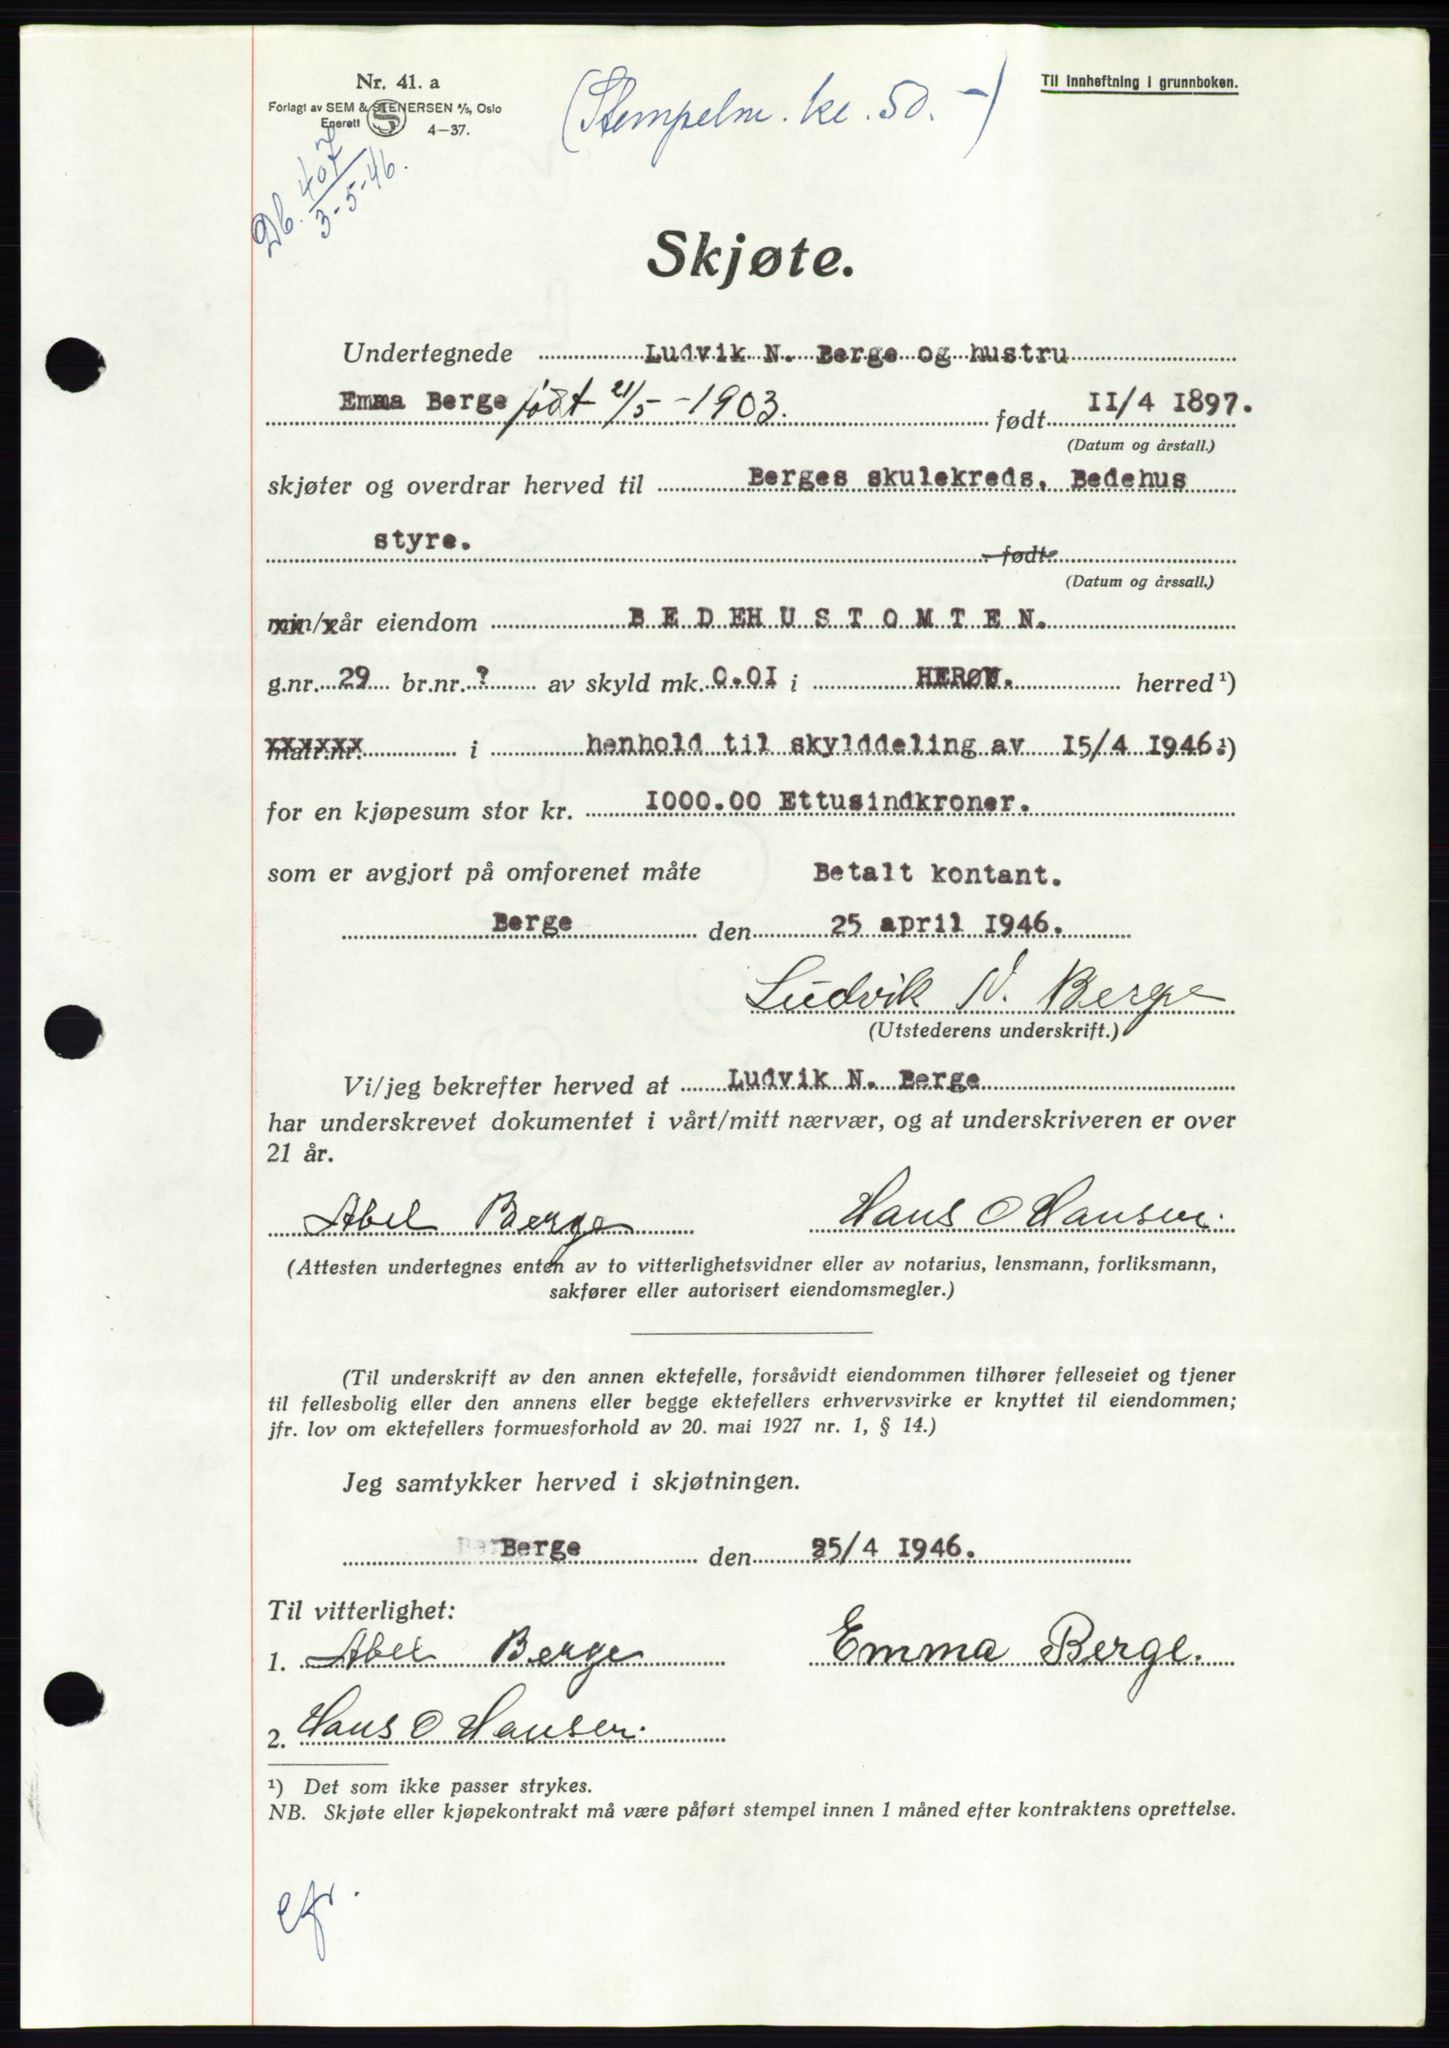 Nr. 41. a
Forlagt av SEM & STENERSEN A/S, Oslo
Enerett S 4—37.
Til innheftning i grunnboken.
(Stempelm. kr. 50.-)
Db. 407
3-5-46.
Skjøte.
Undertegnede Ludvik N. Berge og hustru
Emma Berge født 21/5-1903. født 11/4 1897.
(Datum og årstall.)
skjøter og overdrar herved til Berges skulekreds. Bedehus
styre. født
(Datum og årssall.)
min/vår eiendom BEDEHUSTOMTEN.
g.nr. 29 br.nr. ? av skyld mk. 0.01 i HERØY. herred¹)
matr.nr. i henhold til skylddeling av 15/4 1946.¹)
for en kjøpesum stor kr. 1000.00 Ettusindkroner.
som er avgjort på omforenet måte Betalt kontant.
Berge den 25 april 1946.
Ludvik N. Berge
(Utstederens underskrift.)
Vi/jeg bekrefter herved at Ludvik N. Berge
har underskrevet dokumentet i vårt/mitt nærvær, og at underskriveren er over
21 år.
Abel Berge Hans O Hansen.
(Attesten undertegnes enten av to vitterlighetsvidner eller av notarius, lensmann, forliksmann,
sakfører eller autorisert eiendomsmegler.)
(Til underskrift av den annen ektefelle, forsåvidt eiendommen tilhører felleseiet og tjener
til fellesbolig eller den annens eller begge ektefellers erhvervsvirke er knyttet til eiendommen;
jfr. lov om ektefellers formuesforhold av 20. mai 1927 nr. 1, § 14.)
Jeg samtykker herved i skjøtningen.
Berge den 25/4 1946.
Til vitterlighet:
1. Abel Berge Emma Berge.
2. Hans O Hansen.
¹) Det som ikke passer strykes.
NB. Skjøte eller kjøpekontrakt må være påført stempel innen 1 måned efter kontraktens oprettelse.